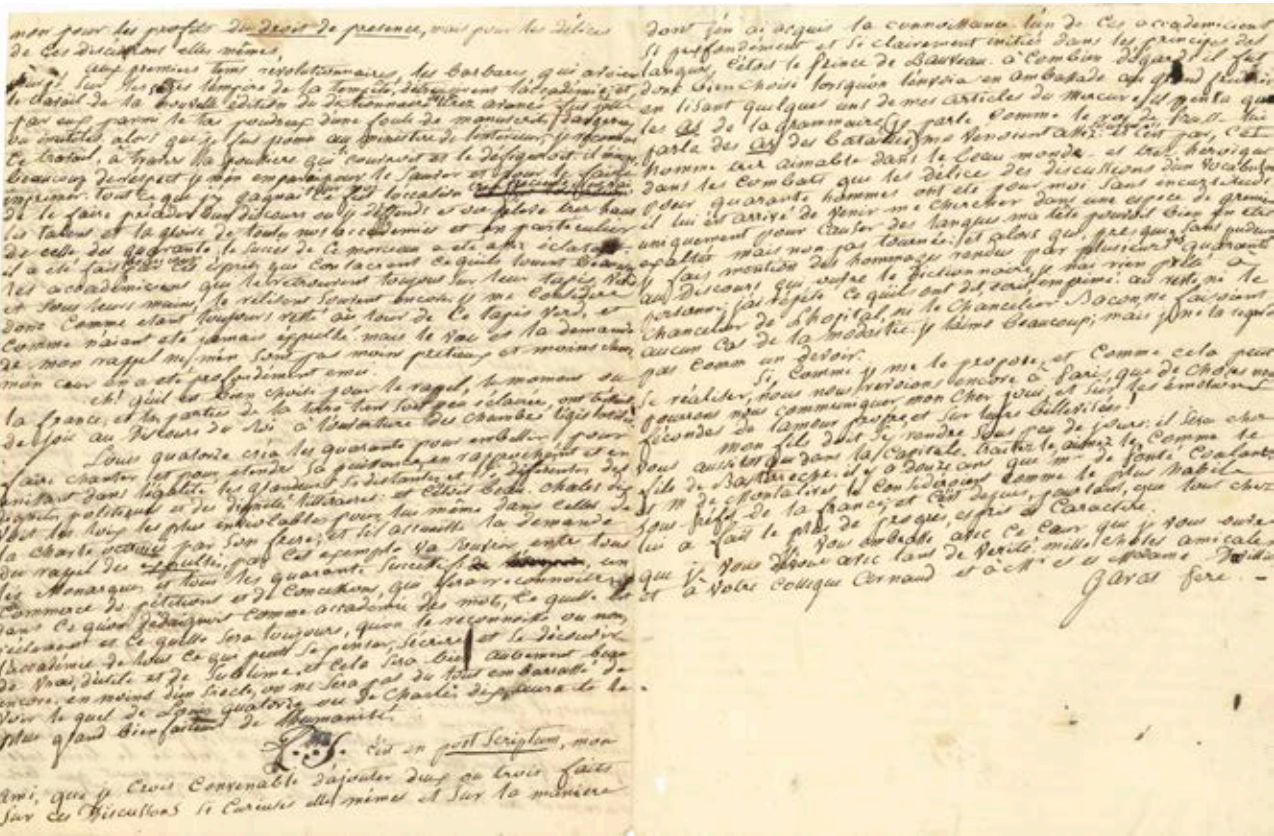 non pour les profits du droit de presence, mais pour les délices
de ces discussions elles mêmes.
aux premiers tems révolutionnaires, les barbares, qui
sur les tempête, detruisirent l'academie; et
le travail de la nouvelle edition du dictionnaire très avancé fut jetté
par eux parmi le tas poudreux d'une foule de manuscrits
ou inutiles alors que je fus nommé au ministere de l'interieur, je reconnus
ce travail, à travers la poussiere qui couvroit et le défiguroit. il m'inspira
beaucoup de respect je m'en emparai pour le sauver et pour le faire
imprimer. tout ce que j'y gagnai ce fut l'occasion
de le faire préceder d'un discours ou je défends et très haut
les talens et la gloire de toutes nos academies et en particulier
de celle des quarante. le succes de ce morceau a été assez éclatant.
il a été fait ces esprits qui consacrent ce qu'ils louent
les académiciens qui le retrouvent toujours sur leur tapis verd
et sous leurs mains, le relisent souvent encore; je me considere
donc comme etant toujours resté au tour de ce tapis verd, et
comme n'aiant eté jamais expulsé. mais le vœu et la demande
de mon rappel ne m'en sont pas moins pretieux et moins chers
mon cœur en a eté profondément emu.
eh! qu'il est bien choisi pour le rapel, le moment ou
la france, et les parties de la terre tant soit peu éclairée, ont
de joie au Discours du Roi à l'ouverture des chambres législatives.
Louis quatorze créa les quarante pour embellir, pour
faire chanter et pour etendre sa puissance, en rapprochant et en
unissant dans l'égalité les grandeurs si distantes et si differentes des
dignités politiques et des dignités litteraires: et c'etoit beau. charles dix
voit les loix les plus inviolables pour lui même dans celles de
la charte octroiée par son frere; et s'il accueille la demande
du rapel des expulsés, par cet exemple va s'ouvrir entre tous
les Monarques et tous les quarante un
commerce de pétitions et de concessions, qui fera reconnoitre
dans ce qu'on dédaignoit comme académie des mots, ce qu'elle est
reellement et ce qu'elle sera toujours, qu'on le reconnoisse ou non,
l'académie de tout ce qui peut se penser, s'écrire et se découvrir
de vrai, d'utile et de sublime. et cela sera bien autrement beau
encore; en moins d'un siecle, on ne sera pas du tout embarrassé de
voir le quel de Louis quatorze ou de charles dix, aura eté le
plus grand bienfaiteur de l'humanité.
P.S. c'est en post scriptum, mon
ami, que je crois convenable d'ajouter deux ou trois faits
sur ces Discussions si curieuses elles mêmes et sur la maniere
dont j'en ai acquis la connoissance. l'un de ces academiciens
si profondément et si clairement initiés dans les principes des
langues, c'étoit le Prince de Bauveau. à combien d'égards il fut
donc bien choisi lorsqu'on l'envoia en ambassade au
en lisant quelques uns de mes articles du Mercure, il pensa que
les as de la grammaire (je parle comme le roy de Prusse qui
parle des as des batailles) me venoient assez.
homme très aimable dans le beau monde et très heroique
dans les combats que les délices des discussions d'un vocabulaire
pour quarante hommes ont eté pour moi sans
il lui est arrivé de venir me chercher dans une espece de grenier
uniquement pour causer des langues ma tête pouvoit bien en etre
exaltée mais non pas tournée: et alors que, presque sans pudeur
je fais mention des hommages rendus par plusieurs des quarante
au Discours qui ouvre le Dictionnaire, je n'ai rien prêté à
personne; j'ai répété ce qu'ils ont dit, écrit, imprimé. au reste, ni le
chancelier de L'hopital, ni le Chancelier Bacon, ne faisoient
aucun cas de la modestie. je l'aime beaucoup, mais je ne la regarde
pas comme un devoir.
Si, comme je me le propose, et comme cela peut
se réaliser, nous nous revoyions encore à Paris, que de choses nous
pourrons nous communiquer mon cher Jouy, et sur les émotions
fécondes de l'amour propre, et sur leurs billevesées!
Mon fils doit se rendre sous peu de jours: il sera chez
vous aussitot que dans la capitale. traitez le, aimez le comme le
fils de Basterreche. il y a douze ans que mr. de Fonté Coulant
et mr de Montalivet le consideroient comme le plus habile
sous préfet de la france; et c'est depuis, pourtant, que tout chez
lui a fait le plus de progrès, esprit et caractere.
je vous embrasse avec ce cœur que je vous ouvre
que je vous dévoue avec tant de verité. mille choses amicales
et à votre collegue Arnaud et à Mr et à Madame
Garat fere.